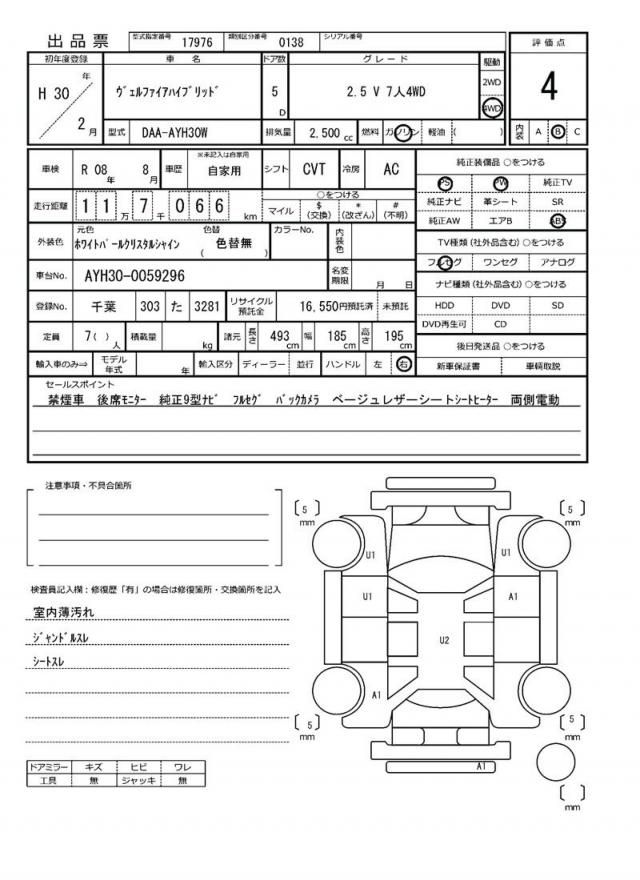 出品票 型式指定番号 17976 類別区分番号 0138 シリアル番号
初年度登録 車 名 ドア数 グレード 駆動 評価点
H 30 年 2 月 ヴェルファイアハイブリッド 5 D 2.5 V 7人4WD 2WD 4WD 4
型式 DAA-AYH30W 排気量 2,500 cc 燃料 ガソリン 軽油 ( ) 内装 A B C
車検 R 08 年 8 月 車歴 ※未記入は自家用 自家用 シフト CVT 冷房 AC 純正装備品 ○をつける
PS PW 純正TV
走行距離 1 1 万 7 千 0 6 6 km ○をつける マイル $ (交換) * (改ざん) # (不明) 純正ナビ 革シート SR
純正AW エアB ABS
外装色 元色 ホワイトパールクリスタルシャイン 色替 ( 色替無 ) カラーNo. 内装色 TV種類 (社外品含む) ○をつける
フルセグ ワンセグ アナログ
車台No. AYH30-0059296 名変期限 月 日 ナビ種類 (社外品含む) ○をつける
登録No. 千葉 303 た 3281 リサイクル預託金 16,550円預託済 未預託 HDD DVD SD
DVD再生可 CD
定員 7( ) 人 積載量 kg 諸元 長さ 493 cm 幅 185 cm 高さ 195 cm 後日発送品 ○をつける
輸入車のみ⇒ モデル年式 年 輸入区分 ディーラー 並行 ハンドル 左 右 新車保証書 車輌取説
セールスポイント
禁煙車 後席モニター 純正9型ナビ フルセグ バックカメラ ベージュレザーシートシートヒーター 両側電動
注意事項・不具合箇所
[ 5 ] mm [ 5 ] mm
U1 U1
検査員記入欄：修復歴「有」の場合は修復箇所・交換箇所を記入
U1 A1
室内薄汚れ
ジャンドルスレ
U2
シートスレ
A1
[ 5 ] mm [ 5 ] mm
ドアミラー キズ ヒビ ワレ
工具 無 ジャッキ 無
A1
[ ] mm